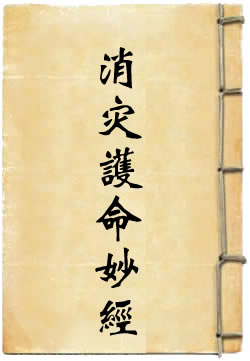 消灾護命妙經